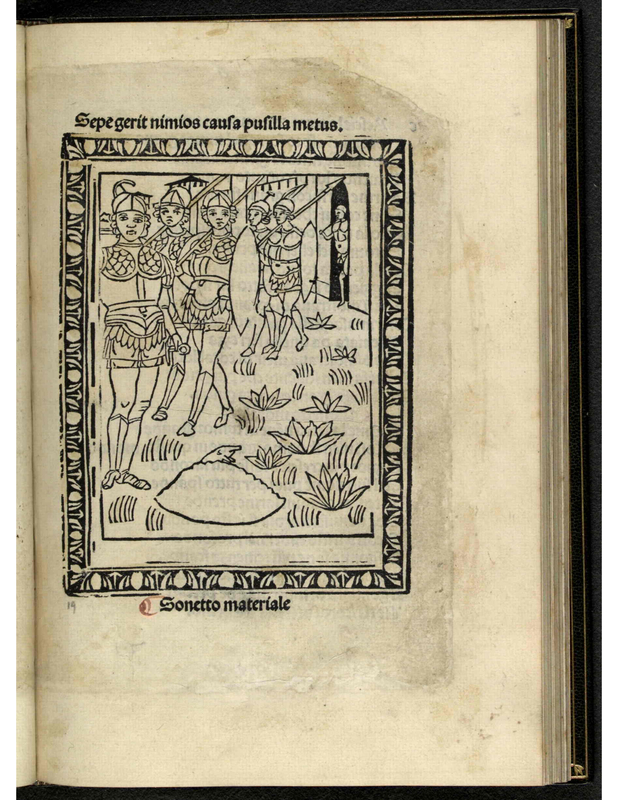 Sepe gerit nimios causa pusilla metus.
19
Sonetto materiale